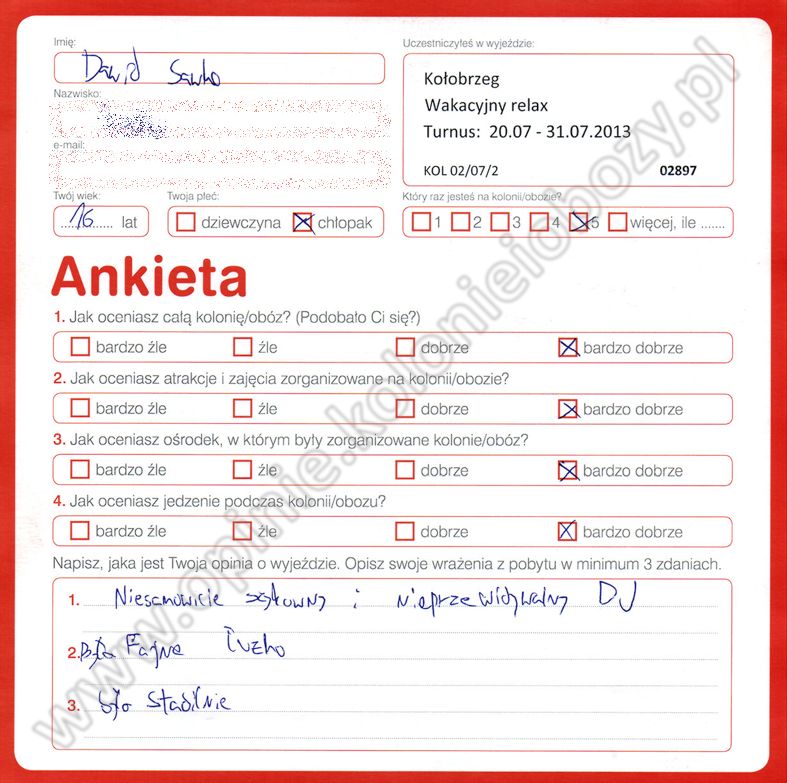 Imię:
Uczestniczyłeś w wyjeździe:
Dawid Sawko
Kołobrzeg
Wakacyjny relax
Turnus: 20.07 - 31.07.2013
KOL 02/07/2 02897
Nazwisko:
e-mail:
Twój wiek:
Twoja płeć:
Który raz jesteś na kolonii/obozie?
16 lat
dziewczyna chłopak
1 2 3 4 5 więcej, ile .......
Ankieta
1. Jak oceniasz całą kolonię/obóz? (Podobało Ci się?)
bardzo źle źle dobrze bardzo dobrze
2. Jak oceniasz atrakcje i zajęcia zorganizowane na kolonii/obozie?
bardzo źle źle dobrze bardzo dobrze
3. Jak oceniasz ośrodek, w którym były zorganizowane kolonie/obóz?
bardzo źle źle dobrze bardzo dobrze
4. Jak oceniasz jedzenie podczas kolonii/obozu?
bardzo źle źle dobrze bardzo dobrze
Napisz, jaka jest Twoja opinia o wyjeździe. Opisz swoje wrażenia z pobytu w minimum 3 zdaniach.
1. Niesamowicie i nieprzewidywalny DJ
2. Fajne
3. było stabilnie
www.opinie.kolonieiobozy.pl